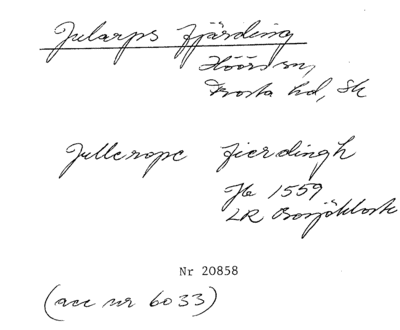 Jularps fjärding
Höörs sn,
Frosta hd, Sk
Jullerope fierdingh
Jb 1559
LR Bosjökloster
Nr 20858
(acc nr 6033)